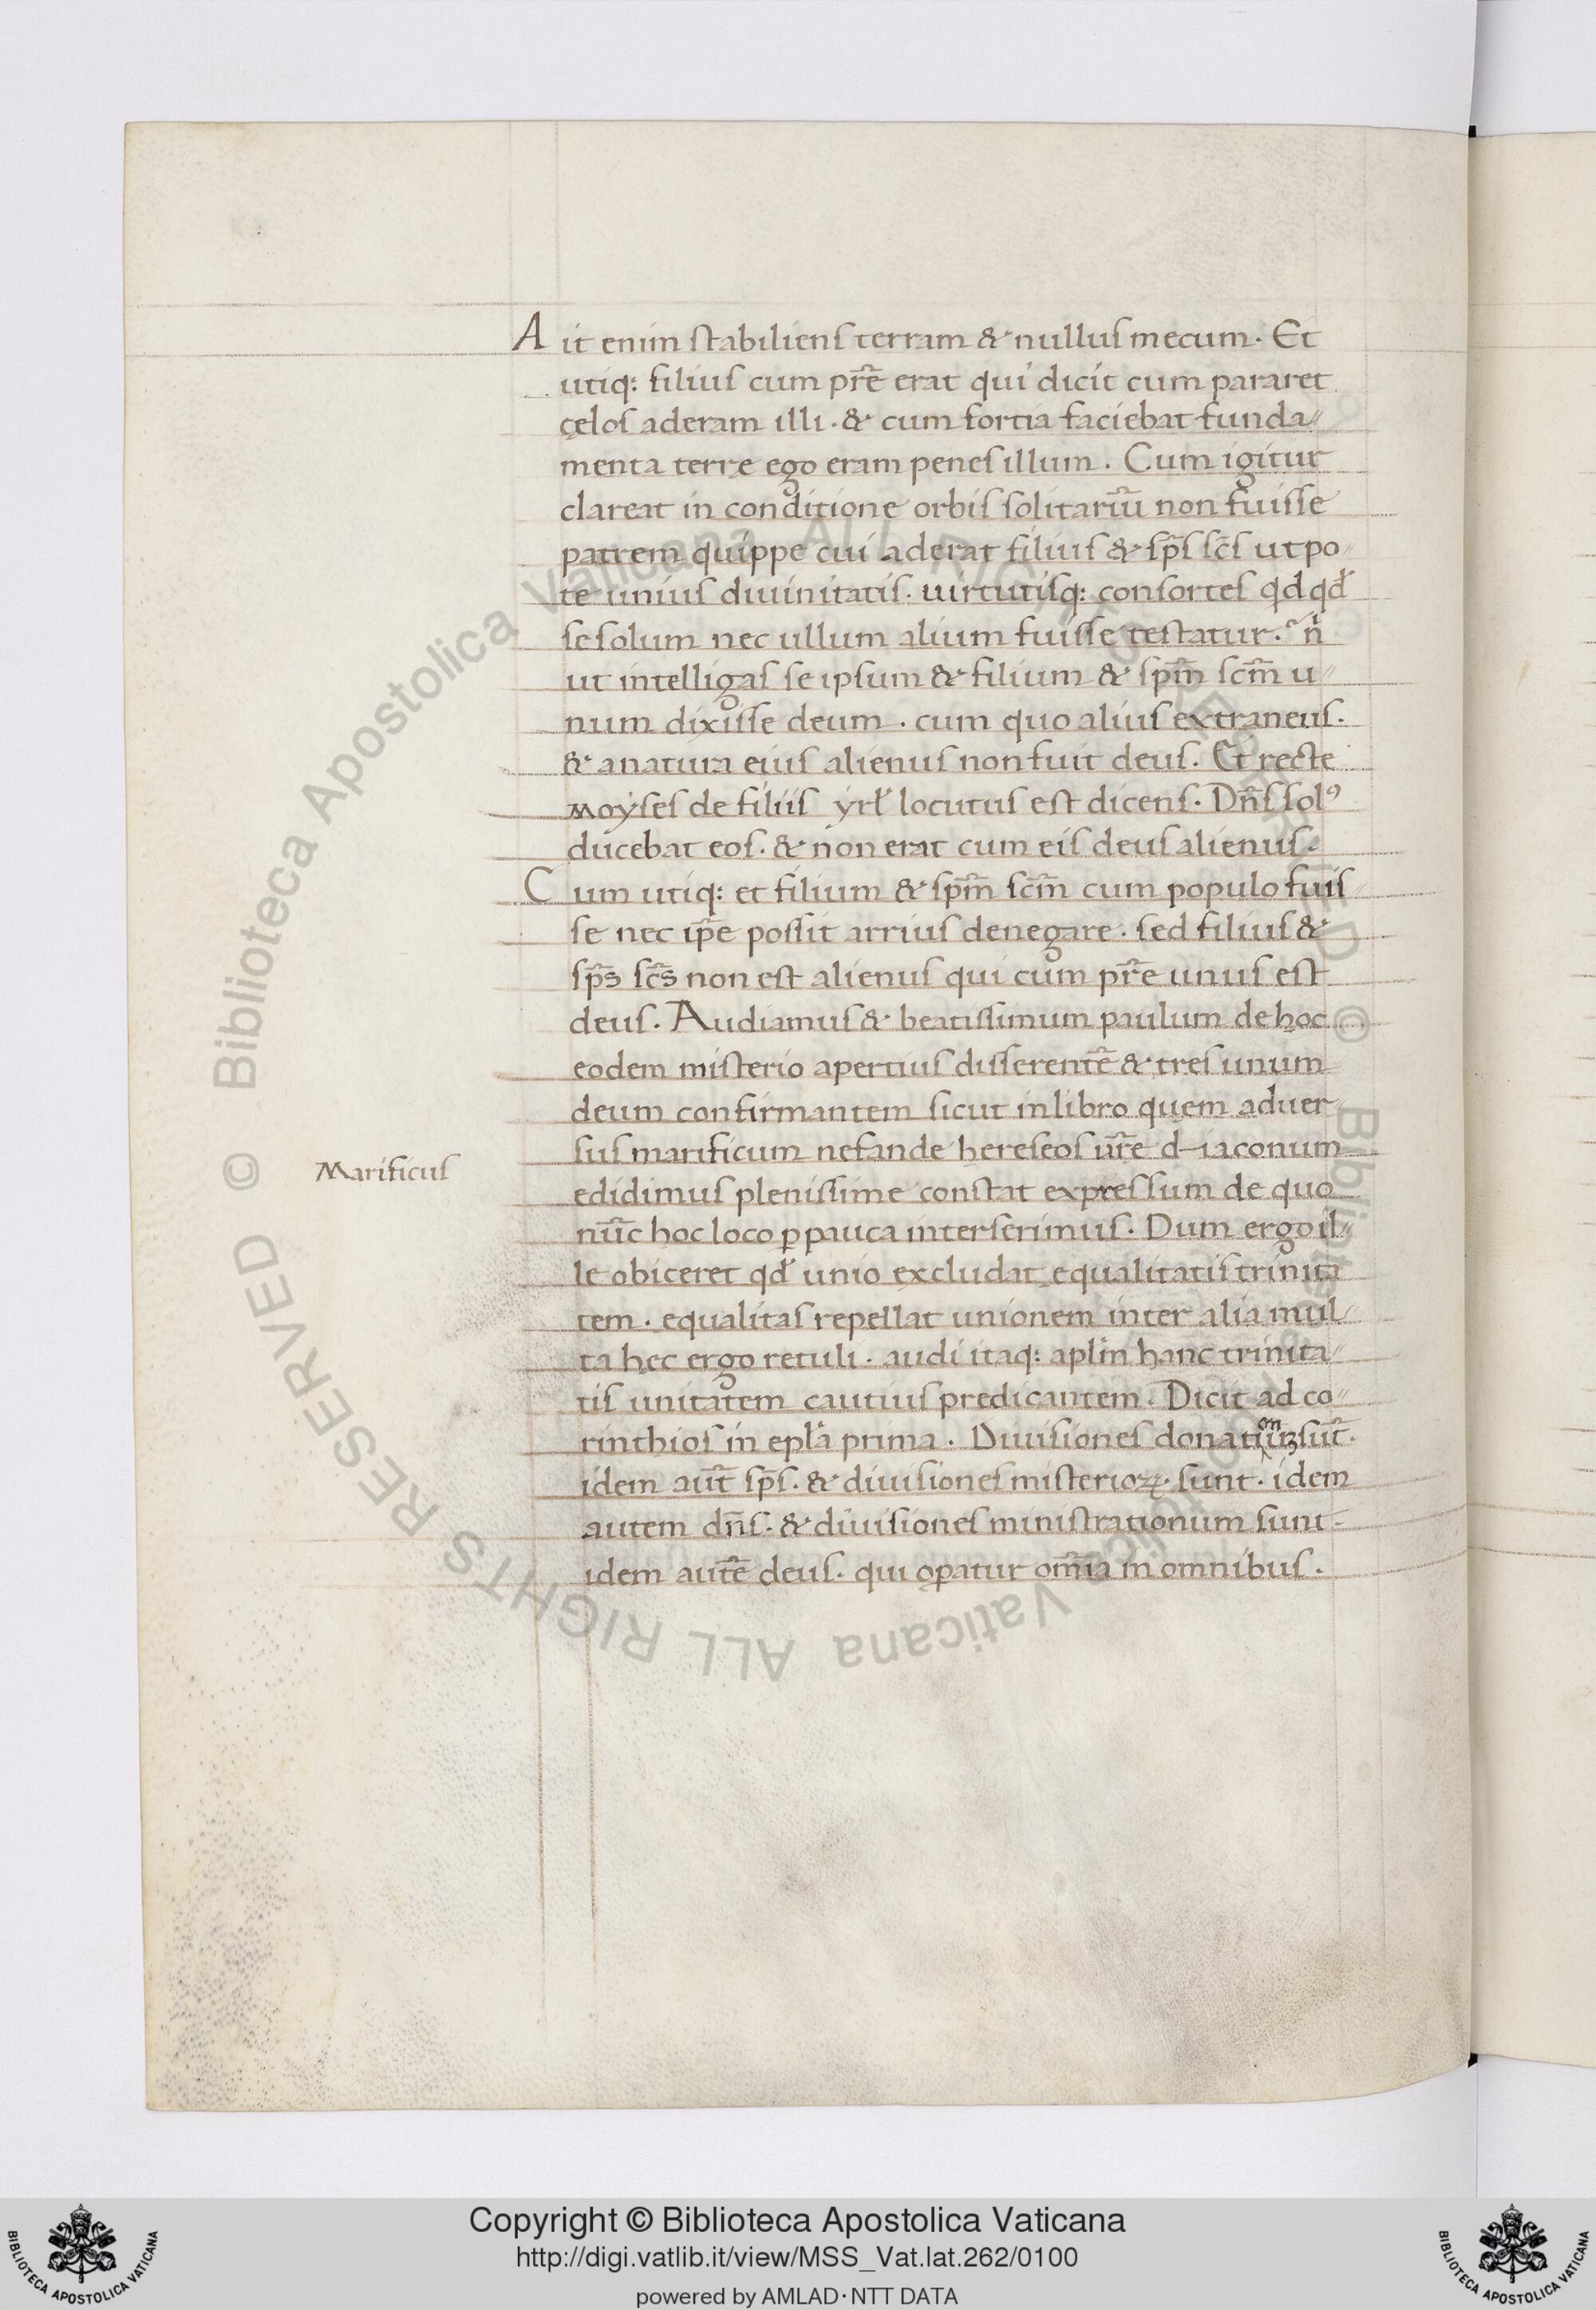 Ait enim stabiliens terram & nullus mecum. Et
utiq: filius cum pr̄e erat qui dicit cum pararet
cęlos aderam illi. & cum fortia faciebat funda
menta terrę ego eram penes illum. Cum igitur
clareat in conditione orbis solitariū non fuisse
patrem quippe cui aderat filius & sp̄s sc̄s utpo
te unius diuinitatis. uirtutisq: consortes qd qđ
se solum nec ullum alium fuisse testatur. n̄
ut intelligas se ipsum & filium & sp̄m sc̄m u
num dixisse deum. cum quo alius extraneus.
& a natura eius alienus non fuit deus. Et recte
moyses de filiis yrł locutus est dicens. Dn̄s solꝰ
ducebat eos. & non erat cum eis deus alienus.
Cum utiq: et filium & sp̄m sc̄m cum populo fuis
se nec ip̄e possit arrius denegare. sed filius &
sp̄s sc̄s non est alienus qui cum pr̄e unus est
deus. Audiamus & beatissimum paulum de hoc
eodem misterio apertius disserentē & tres unum
deum confirmantem sicut in libro quem aduer
Marificus
sus marificum nefande hereseos ur̄e diaconum
edidimus plenissime constat expressum de quo
nūc hoc loco ꝑpauca interserimus. Dum ergo il
le obiceret qđ unio excludat equalitatis trinita
tem. equalitas repellat unionem inter alia mul
ta hec ergo retuli. audi itaq: aplm̄ hanc trinita
tis unitatem cautius predicantem. Dicit ad co
rinthios in epl̄a prima. Diuisiones donationū sūt.
idem aūt sp̄s. & diuisiones misterioꝝ sunt. idem
autem dn̄s. & diuisiones ministrationum sunt.
idem autē deus. qui oꝑatur om̄ia in omnibus.
© Biblioteca Apostolica Vaticana ALL RIGHTS RESERVED © Biblioteca Apostolica Vaticana ALL RIGHTS RESERVED
Copyright © Biblioteca Apostolica Vaticana
http://digi.vatlib.it/view/MSS_Vat.lat.262/0100
powered by AMLAD·NTT DATA
BIBLIOTECA APOSTOLICA VATICANA
BIBLIOTECA APOSTOLICA VATICANA